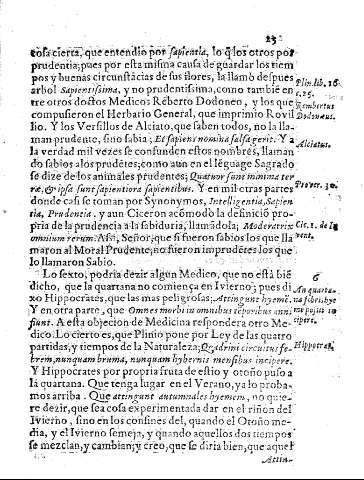 23
cosa cierta, que entendio por sapientia, lo q̃ los otros por
prudentia; pues por esta misma causa de guardar los tiem
pos y buenas circunstãcias de sus flores, la llamò despues
arbol Sapientissima, y no prudentissima, como tambiẽ en
tre otros doctos Medicos Reberto Dodoneo, y los que
compusieron el Herbario General, que imprimio Rovil
lio. Y los Versillos de Alciato, que saben todos, no la lla-
man prudente, sino sabia; Et sapiens nomina falsa gerit. Y a
la verdad mil vezes se confunden estos nombres, llaman
do sabios a los prudẽtes; como aun en el lẽguage Sagrado
se dize de los animales prudentes; Quatuor sunt minima ter
ræ, & ipsa sunt sapientiora sapientibus. Y en mil otras partes
donde casi se toman por Synonymos, Intelligentia, Sapien
tia, Prudentia. y aun Ciceron acõmodò la definiciõ pro-
pria de la prudencia a la sabiduria, llamãdola; Moderatrix
omnium rerum. Assi, Señor, que si fueron sabios los que lla
maron al Moral Prudente, no fueron imprudẽtes los que
lo llamaron Sabio.
Lo sexto, podria dezir algun Medico, que no està biẽ
dicho, que la quartana no comiença en Ivierno; pues di
xo Hippocrates, que las mas peligrosas; Attingunt hyemẽ.
Y en otra parte, que Omnes morbi in omnibus temporibus anni
fiunt. A esta objecion de Medicina respondera otro Me-
dico. Lo cierto es, que Plinio pone por Ley de las quatro
partidas, y tiempos de la Naturaleza; Quadrini circuitus fe-
brem, nunquam bruma, nunquam hybernis mensibus incipere.
Y Hippocrates por propria fruta de estio y otoño puso a
la quartana. Que tenga lugar en el Verano, ya lo proba-
mos arriba. Que attingunt autumnales hyemem, no quie-
re dezir, que sea cosa experimentada dar en el riñon del
Ivierno, sino en los confines del, quando el Otoño me-
dia, y el Ivierno semeja, y quando aquellos dos tiempos
se mezclan, y cambian; y creo, que se diria bien, que aquel
Attin-
Plin. lib. 16
c. 25.
Rembertus
Dodoneus.
Alciatus.
Prover. 30.
Cic. 1. de In
vent.
6
An quarta-
na febris hye
me possit in-
cipere.
Hippocrat.